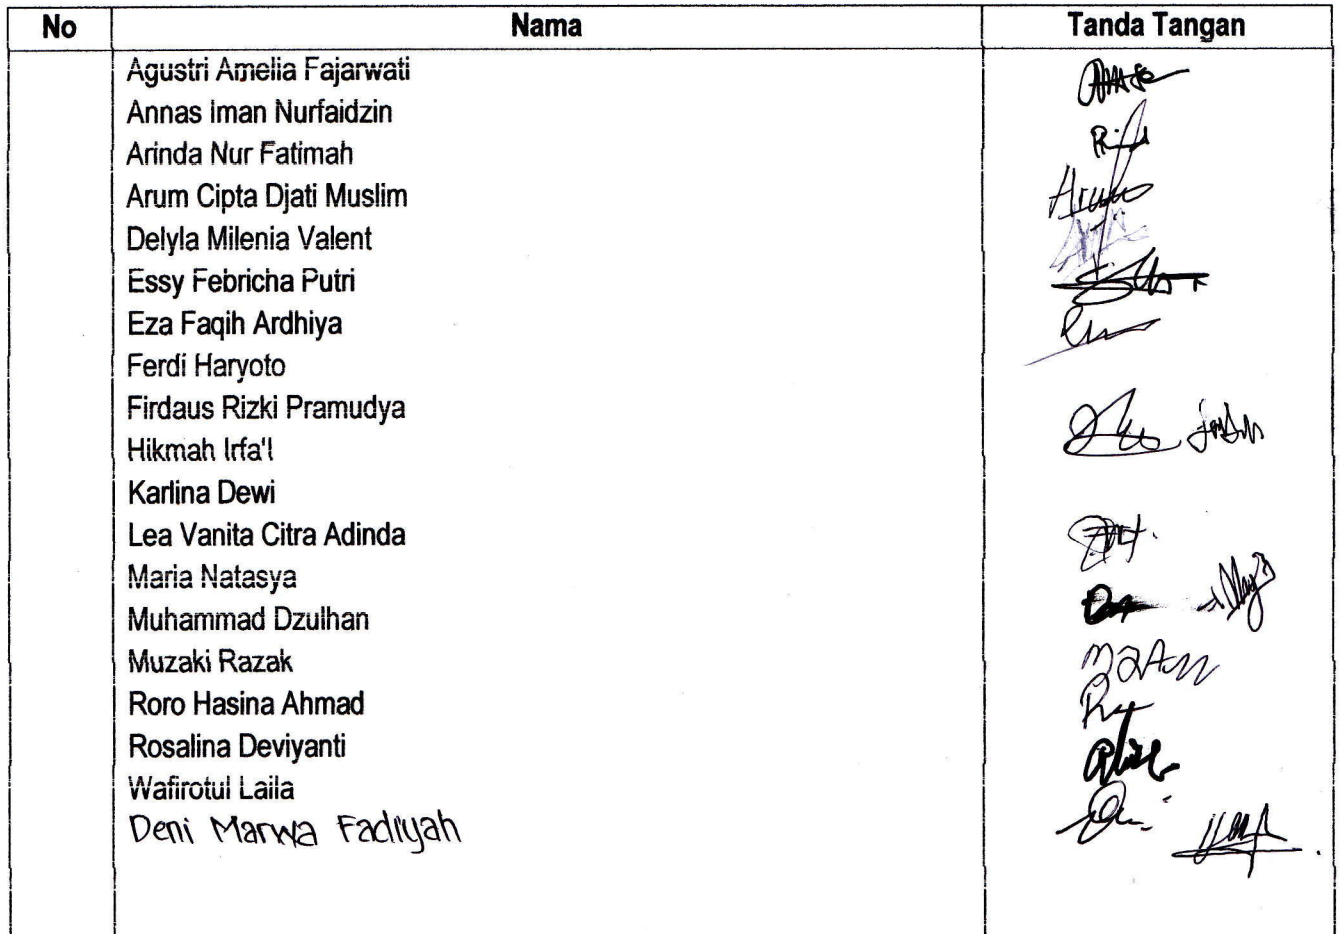 No Nama Tanda Tangan
Agustri Amelia Fajarwati
Annas Iman Nurfaidzin
Arinda Nur Fatimah
Arum Cipta Djati Muslim
Delyla Milenia Valent
Essy Febricha Putri
Eza Faqih Ardhiya
Ferdi Haryoto
Firdaus Rizki Pramudya
Hikmah Irfa'l
Karlina Dewi
Lea Vanita Citra Adinda
Maria Natasya
Muhammad Dzulhan
Muzaki Razak
Roro Hasina Ahmad
Rosalina Deviyanti
Wafirotul Laila
Deni Marwa Fadliyah